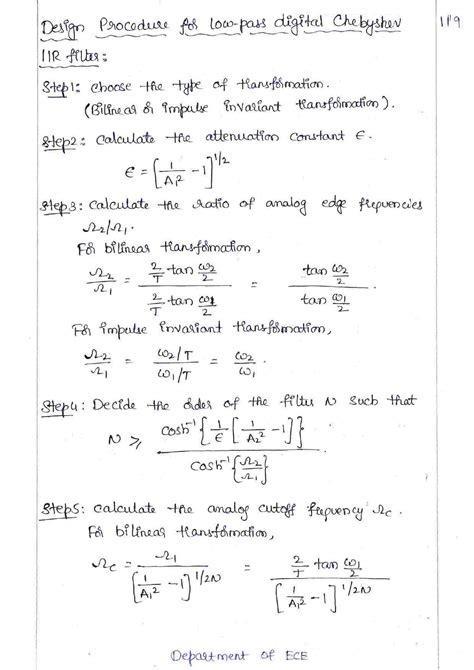 Design Procedure for low-pass digital Chebyshev 119
IIR filter:
Step1: choose the type of transformation.
(Bilinear or impulse invariant transformation).
Step2: calculate the attenuation constant ϵ.
ϵ = [1/A₁² - 1]^1/2
Step3: calculate the ratio of analog edge frequencies
Ω₂/Ω₁.
For bilinear transformation,
Ω₂/Ω₁ = (2/T tan ω₂/2)/(2/T tan ω₁/2) = (tan ω₂/2)/(tan ω₁/2)
For impulse invariant transformation,
Ω₂/Ω₁ = (ω₂/T)/(ω₁/T) = ω₂/ω₁.
Step4: Decide the order of the filter N such that
N ≥ cosh⁻¹{1/ϵ [1/A₂² - 1]}/cosh⁻¹{Ω₂/Ω₁}
Step5: calculate the analog cutoff frequency Ωc.
For bilinear transformation,
Ωc = Ω₁/[1/A₁² - 1]^1/2N = (2/T tan ω₁/2)/[1/A₁² - 1]^1/2N
Department of ECE